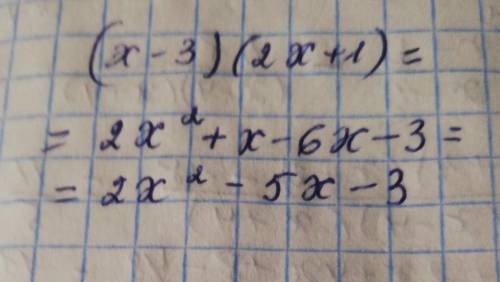 (x - 3)(2x+1) =
= 2x² + x - 6x - 3 =
= 2x² - 5x - 3